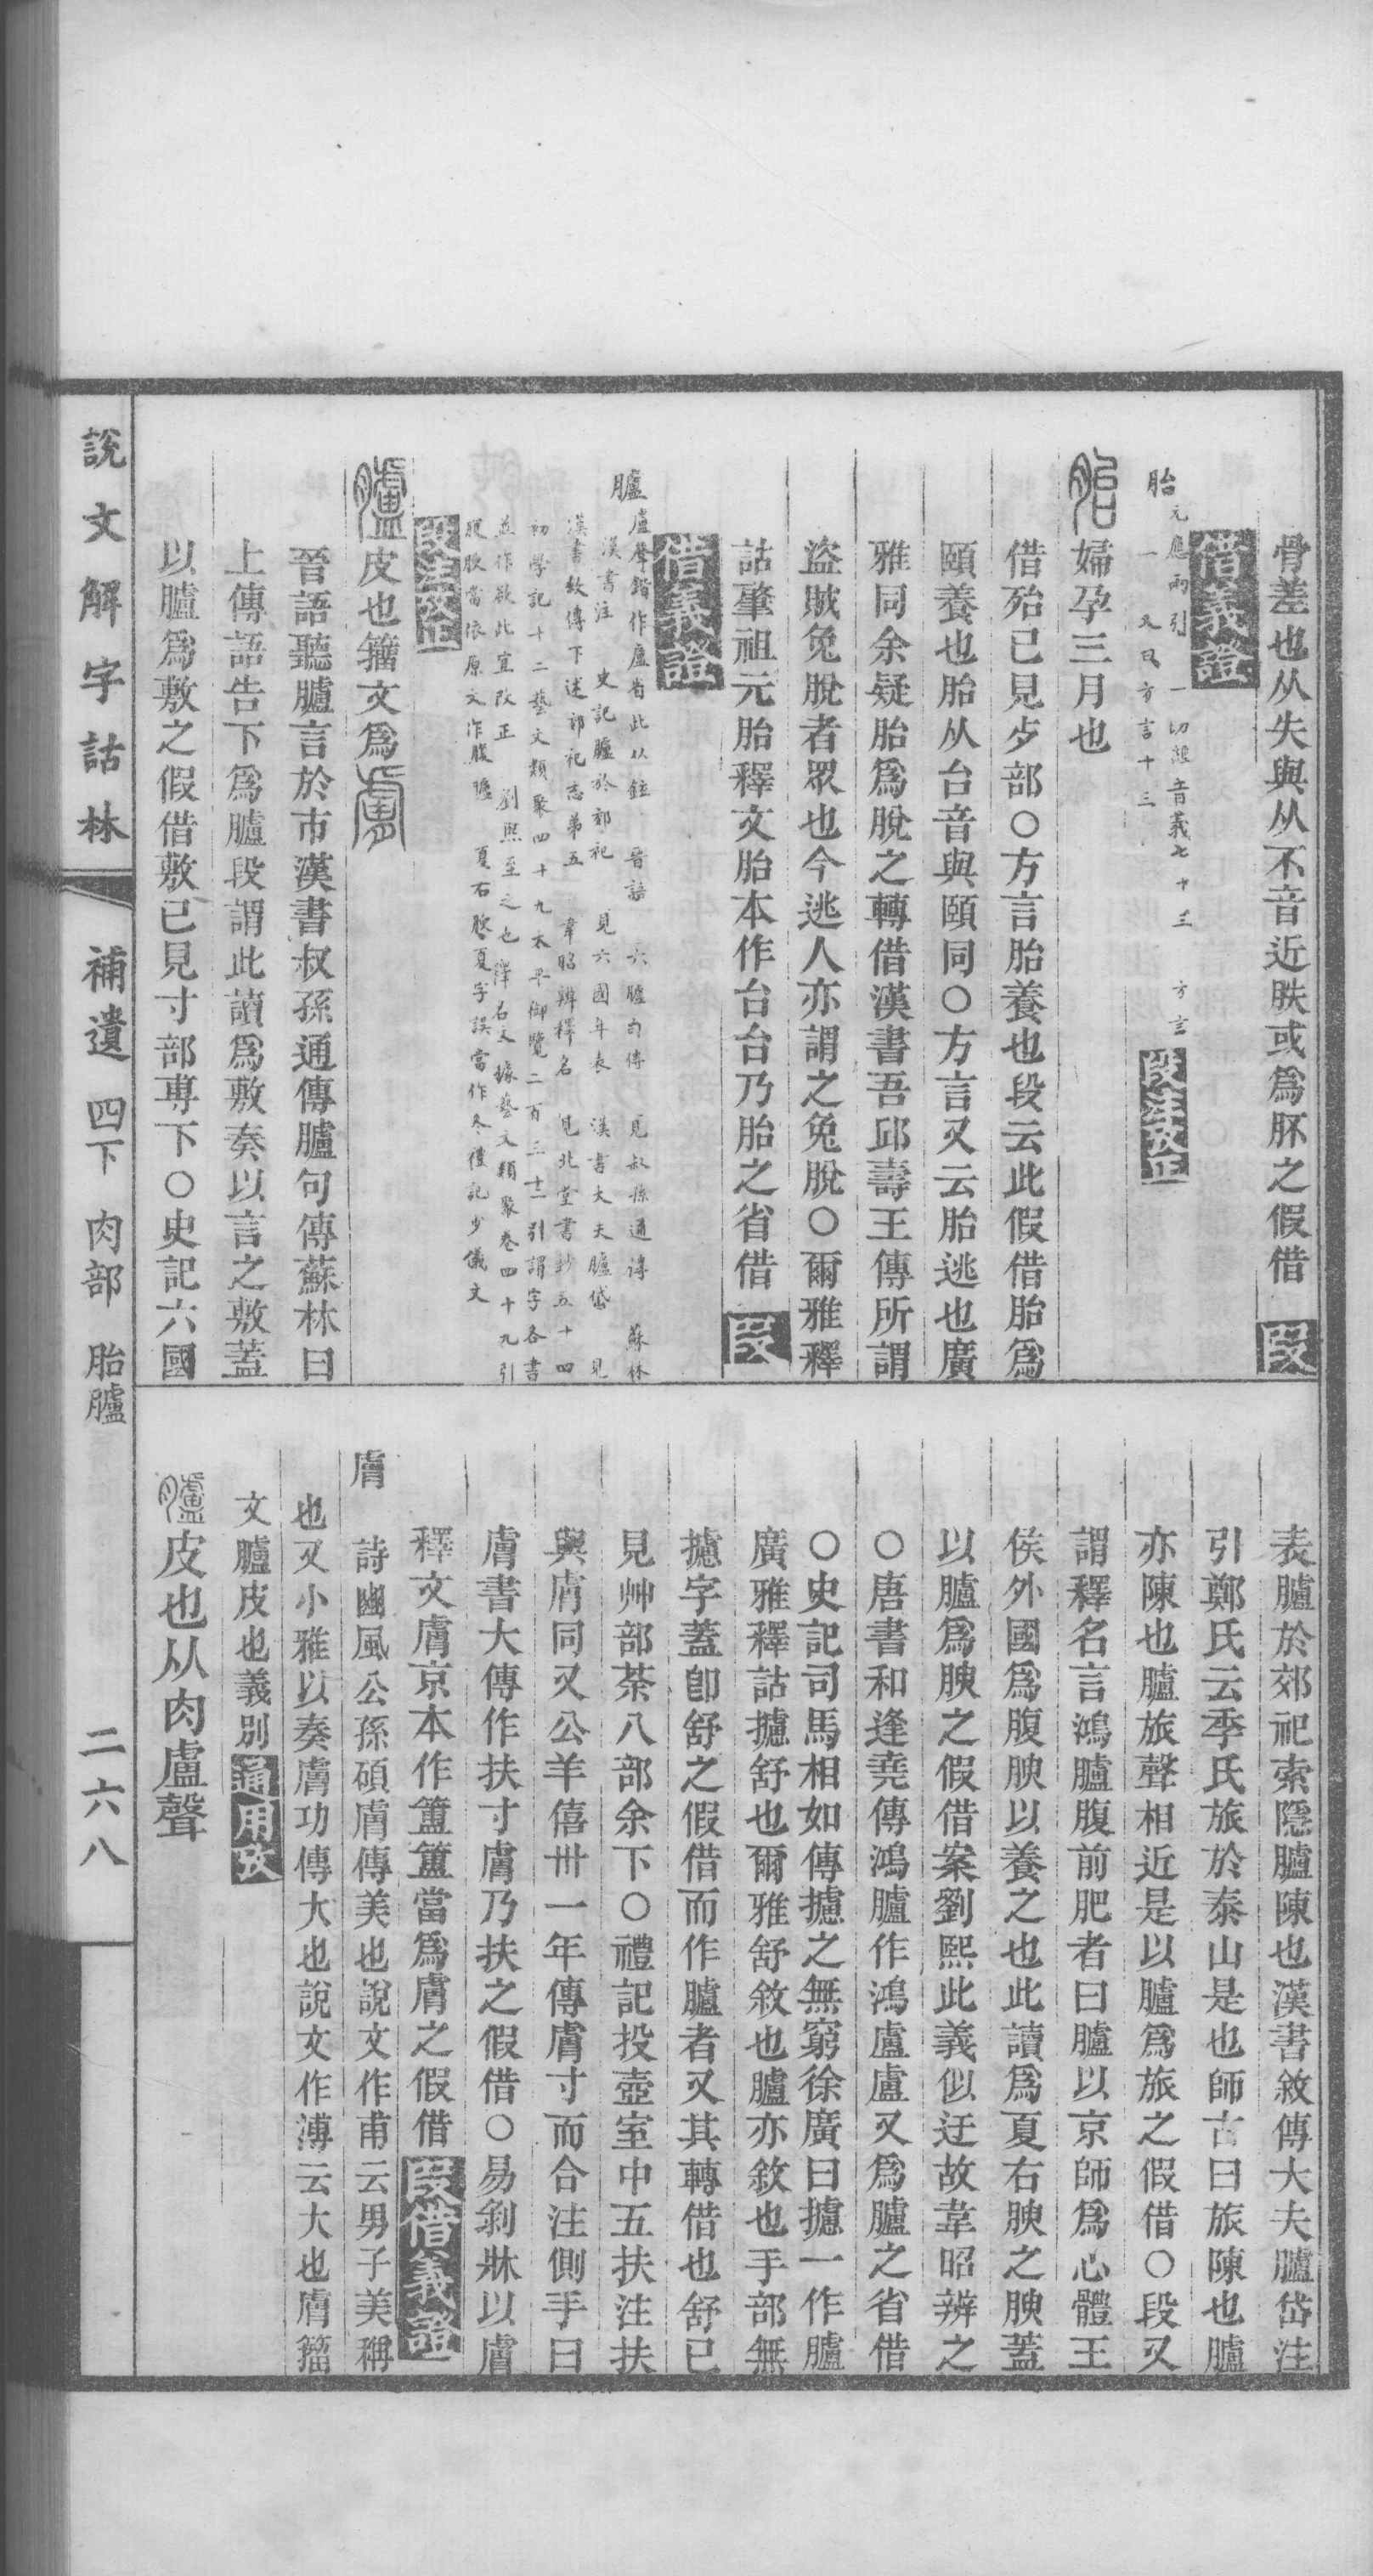 骨差也从失與从不音近胅或爲肧之假借　段
借義證
胎元應兩引　一切經音義七十三　方言
一　又曰方言十三　段注攷正
胎婦孕三月也
借殆已見歺部○方言胎養也段云此假借胎爲
頤養也胎从台音與頤同○方言又云胎逃也廣
雅同余疑胎爲脫之轉借漢書吾邱壽王傳所謂
盜賊兔脫者眾也今逃人亦謂之兔脫○爾雅釋
詁肇祖元胎釋文胎本作台台乃胎之省借　段
借義證
臚盧聲鍇作盧省此从鉉　晉語　六臚句傳　見叔孫通傳　蘇林
漢書注　史記臚於郊祀　見六國年表　漢書大夫臚岱　見
漢書敘傳下述郊祀志弟五　韋昭辨釋名　見北堂書鈔五十四
初學記十二藝文類聚四十九太平御覽二百三十二引謂字各書
並作欲此宜改正　劉熙至之也　釋名文據藝文類聚卷四十九引
腴腴當依原文作腹臚　夏右腴夏字誤當作冬僅記少儀文
段注攷正
臚皮也籒文爲膚
晉語聽臚言於市漢書叔孫通傳臚句傳蘇林曰
上傳語告下爲臚段謂此讀爲敷奏以言之敷蓋
以臚爲敷之假借敷已見寸部尃下○史記六國
表臚於郊祀索隱臚陳也漢書敘傳大夫臚岱注
引鄭氏云季氏旅於泰山是也師古曰旅陳也臚
亦陳也臚旅聲相近是以臚爲旅之假借○段又
謂釋名言鴻臚腹前肥者曰臚以京師爲心體王
侯外國爲腹腴以養之也此讀爲夏右腴之腴蓋
以臚爲腴之假借案劉熙此義似迂故韋昭辨之
○唐書和逢堯傳鴻臚作鴻盧盧又爲臚之省借
○史記司馬相如傳攄之無窮徐廣曰攄一作臚
廣雅釋詁攄舒也爾雅舒敘也臚亦敘也手部無
攄字蓋卽舒之假借而作臚者又其轉借也舒已
見艸部荼八部余下○禮記投壺室中五扶注扶
與膚同又公羊僖卅一年傳膚寸而合注側手曰
膚書大傳作扶寸膚乃扶之假借○易剝牀以膚
釋文膚京本作簠簠當爲膚之假借　段借義證
膚　詩豳風公孫碩膚傳美也說文作甫云男子美稱
也又小雅以奏膚功傳大也說文作溥云大也膚籒
文臚皮也義別　通用攷
臚皮也从肉盧聲
說文解字詁林　補遺　四下　肉部　胎臚　二六八